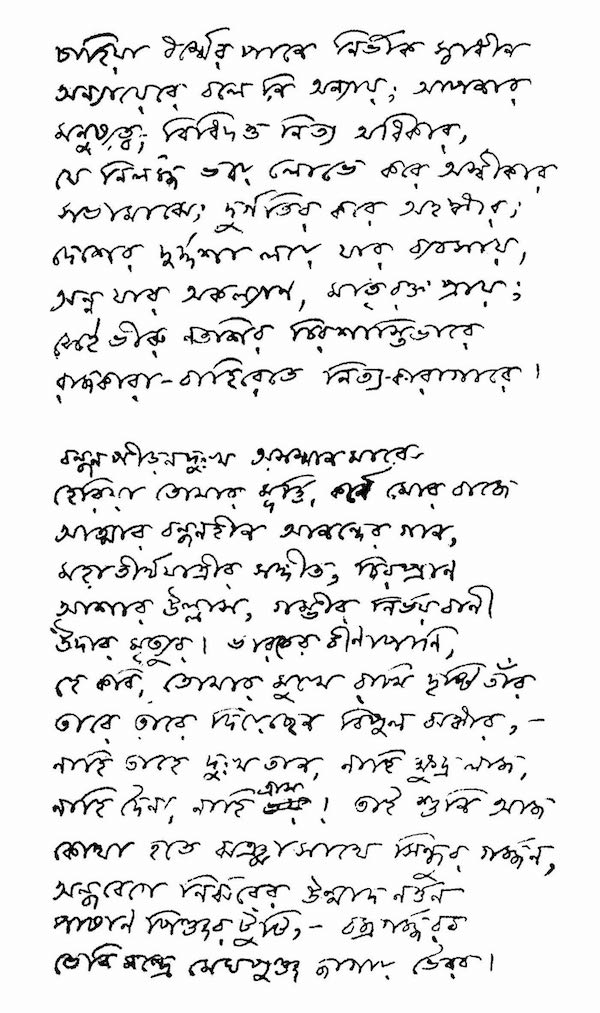 চাহিয়া ধর্ম্মের পানে নির্ভীক স্বাধীন
অন্যায়েরে বলে নি অন্যায়; আপনার
মনুষ্যত্ব, বিধিদত্ত নিত্য অধিকার,
যে নির্লজ্জ ভয়ে লোভে করে অস্বীকার
সভামাঝে; দুর্গতির করে অহঙ্কার;
দেশের দুর্দ্দশা লয়ে যার ব্যবসায়,
অন্ন যার অকল্যাণ, মাতৃরক্ত প্রায়;
সেই ভীরু নতশির চিরশাস্তিভারে
রাজকারা-বাহিরেতে নিত্য-কারাগারে।

বন্ধন পীড়ন দুঃখ অসম্মান মাঝে
হেরিয়া তোমার মূর্ত্তি, কর্ণে মোর বাজে
আত্মার বন্ধনহীন আনন্দের গান,
মহাতীর্থযাত্রীর সঙ্গীত, চিরপ্রাণ
আশার উল্লাস, গম্ভীর নির্ভয় বাণী
উদার মৃত্যুর। ভারতের বীণাপাণি,
হে কবি, তোমার মুখে রাখি দৃষ্টি তাঁর
তারে তারে দিয়েছেন বিপুল ঝঙ্কার,–
নাহি তাহে দুঃখতান, নাহি ক্ষুদ্র লাজ,
নাহি দৈন্য, নাহি ত্রাস। তাই শুনি আজ
কোথা হতে ঝঞ্ঝাসাথে সিন্ধুর গর্জ্জন,
অন্ধবেগে নির্ঝরের উন্মাদ নর্ত্তন
পাষাণ পিঞ্জর টুটি,– বজ্রগর্জ্জরব
ভেরিমন্দ্রে মেঘপুঞ্জ জাগায় ভৈরব।